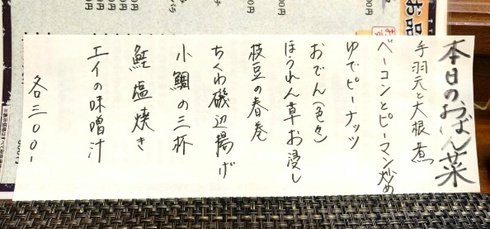 本日のおばん菜
手羽元と大根煮
ベーコンとピーマン炒め
ゆでピーナッツ
おでん(色々)
ほうれん草お浸し
枝豆の春巻
ちくわ磯辺揚げ
小鯛の三杯
鮭塩焼き
エイの味噌汁
各300-